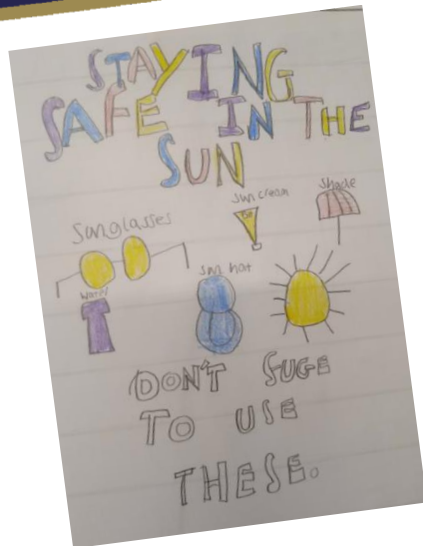 STAYING
SAFE IN THE
SUN
Sunglasses
Sun cream
Shade
water
sun hat
DON'T SUGE
TO USE
THESE.